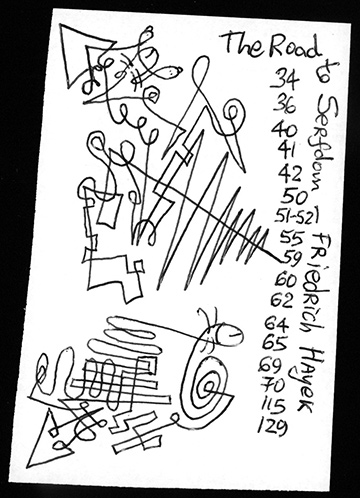 The Road
to Serfdom Friedrich Hayek
34
36
40
41
42
50
51-52
55
59
60
62
64
65
69
70
115
129